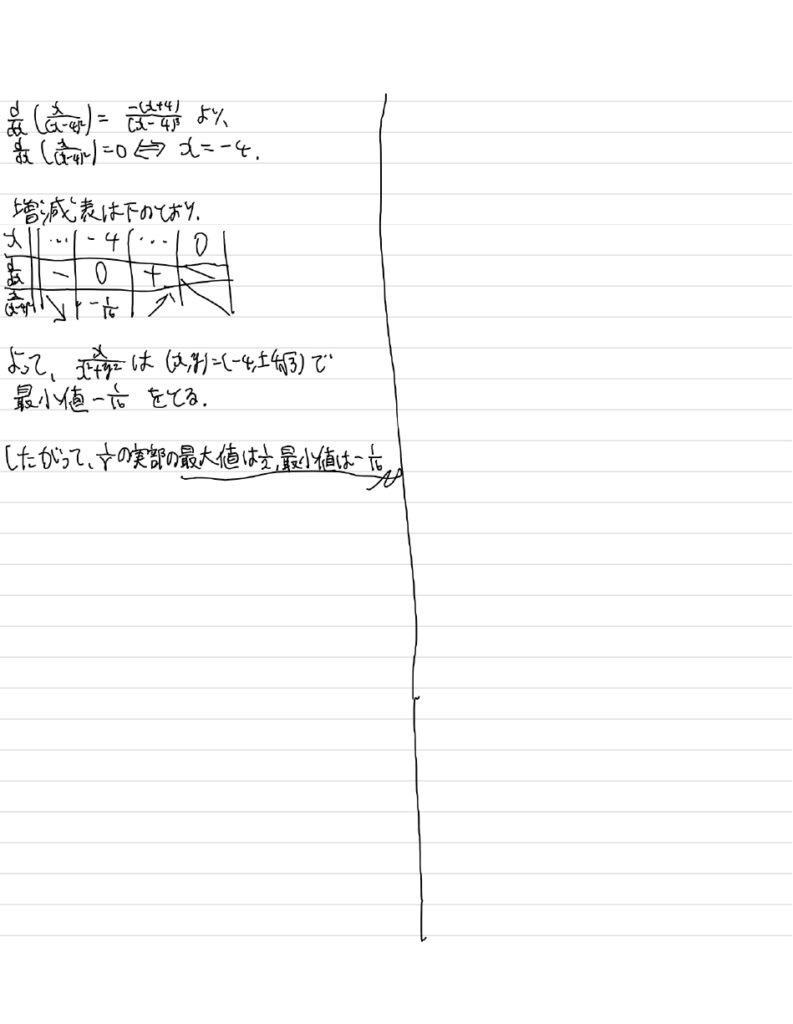 d/dx (x/(x-4)²) = -(x+4)/(x-4)³ より、
d/dx (x/(x-4)²) = 0 ⇔ x = -4.
増減表は下のとおり.
x | … | -4 | … | 0
d/dx | - | 0 | + | ＼
x/(x-4)² | ↘ | -1/16 | ↗ | ＼
よって、x/(x²+y²) は (x,y)=(-4,±4√3) で
最小値 -1/16 をとる.
したがって、の実部の最大値は1/2,最小値は-1/16